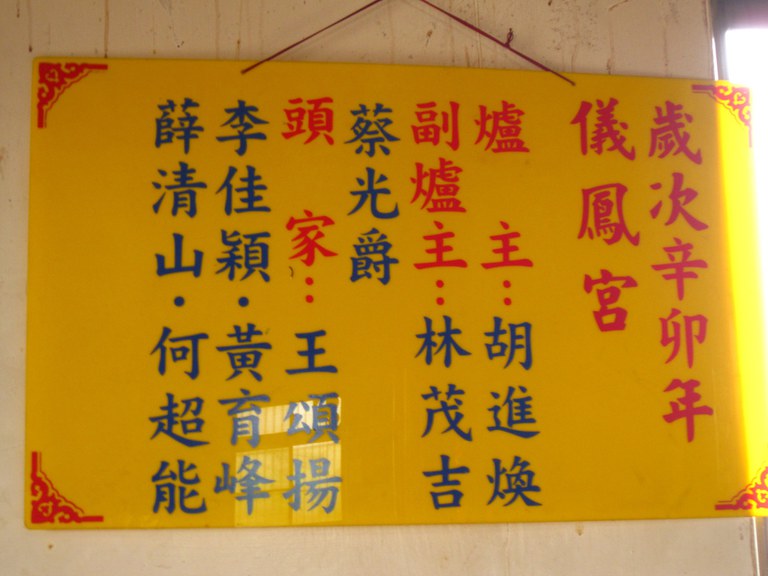 歲次辛卯年
儀鳳宮
爐主：胡進煥
副爐主：林茂吉
蔡光爵
頭家：王頌揚
李佳穎・黃育峰
薛清山・何超能